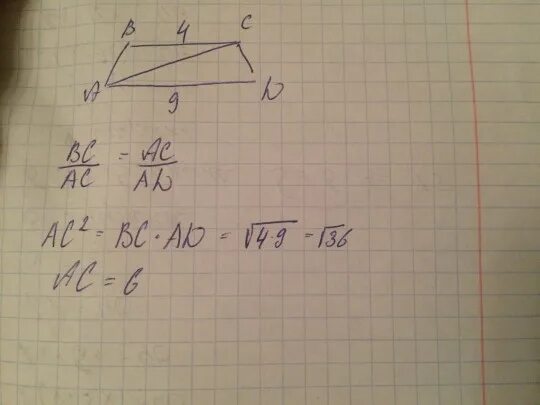 B 4 C
A 9 D
BC/AC = AC/AD
AC² = BC · AD = √4·9 = √36
AC = 6